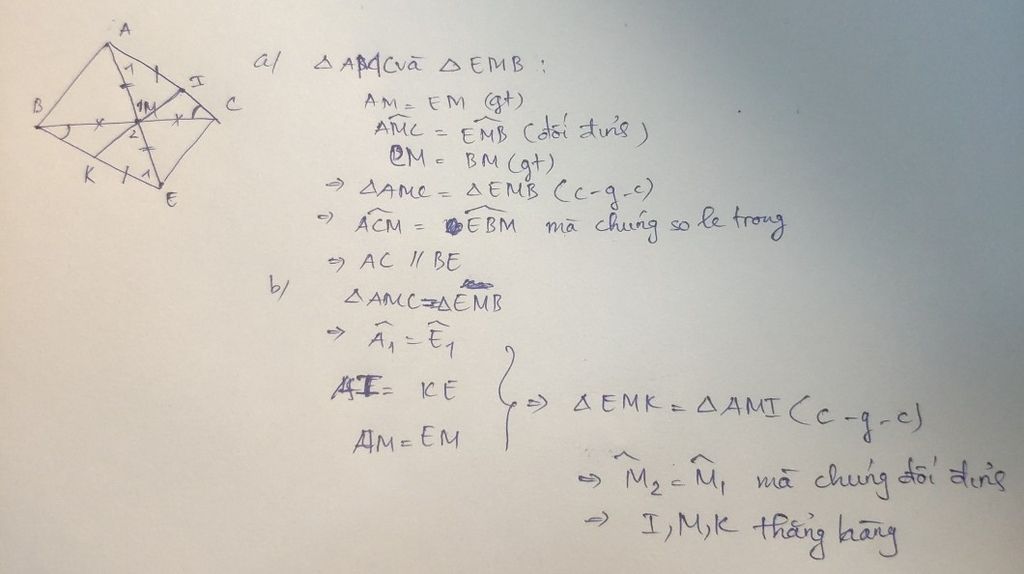 A
B
C
I
1
1M
2
K
1
E
a/ △ AMC và △ EMB :
AM = EM (gt)
AMC = EMB (đối đỉnh)
CM = BM (gt)
⇒ △AMC = △EMB (c-g-c)
⇒ ACM = EBM mà chúng so le trong
⇒ AC // BE
b/ △AMC = △EMB
⇒ A₁ = E₁
AI = KE
AM = EM
⇒ △EMK = △AMI (c-g-c)
⇒ M₂ = M₁ mà chúng đối đỉnh
⇒ I, M, K thẳng hàng